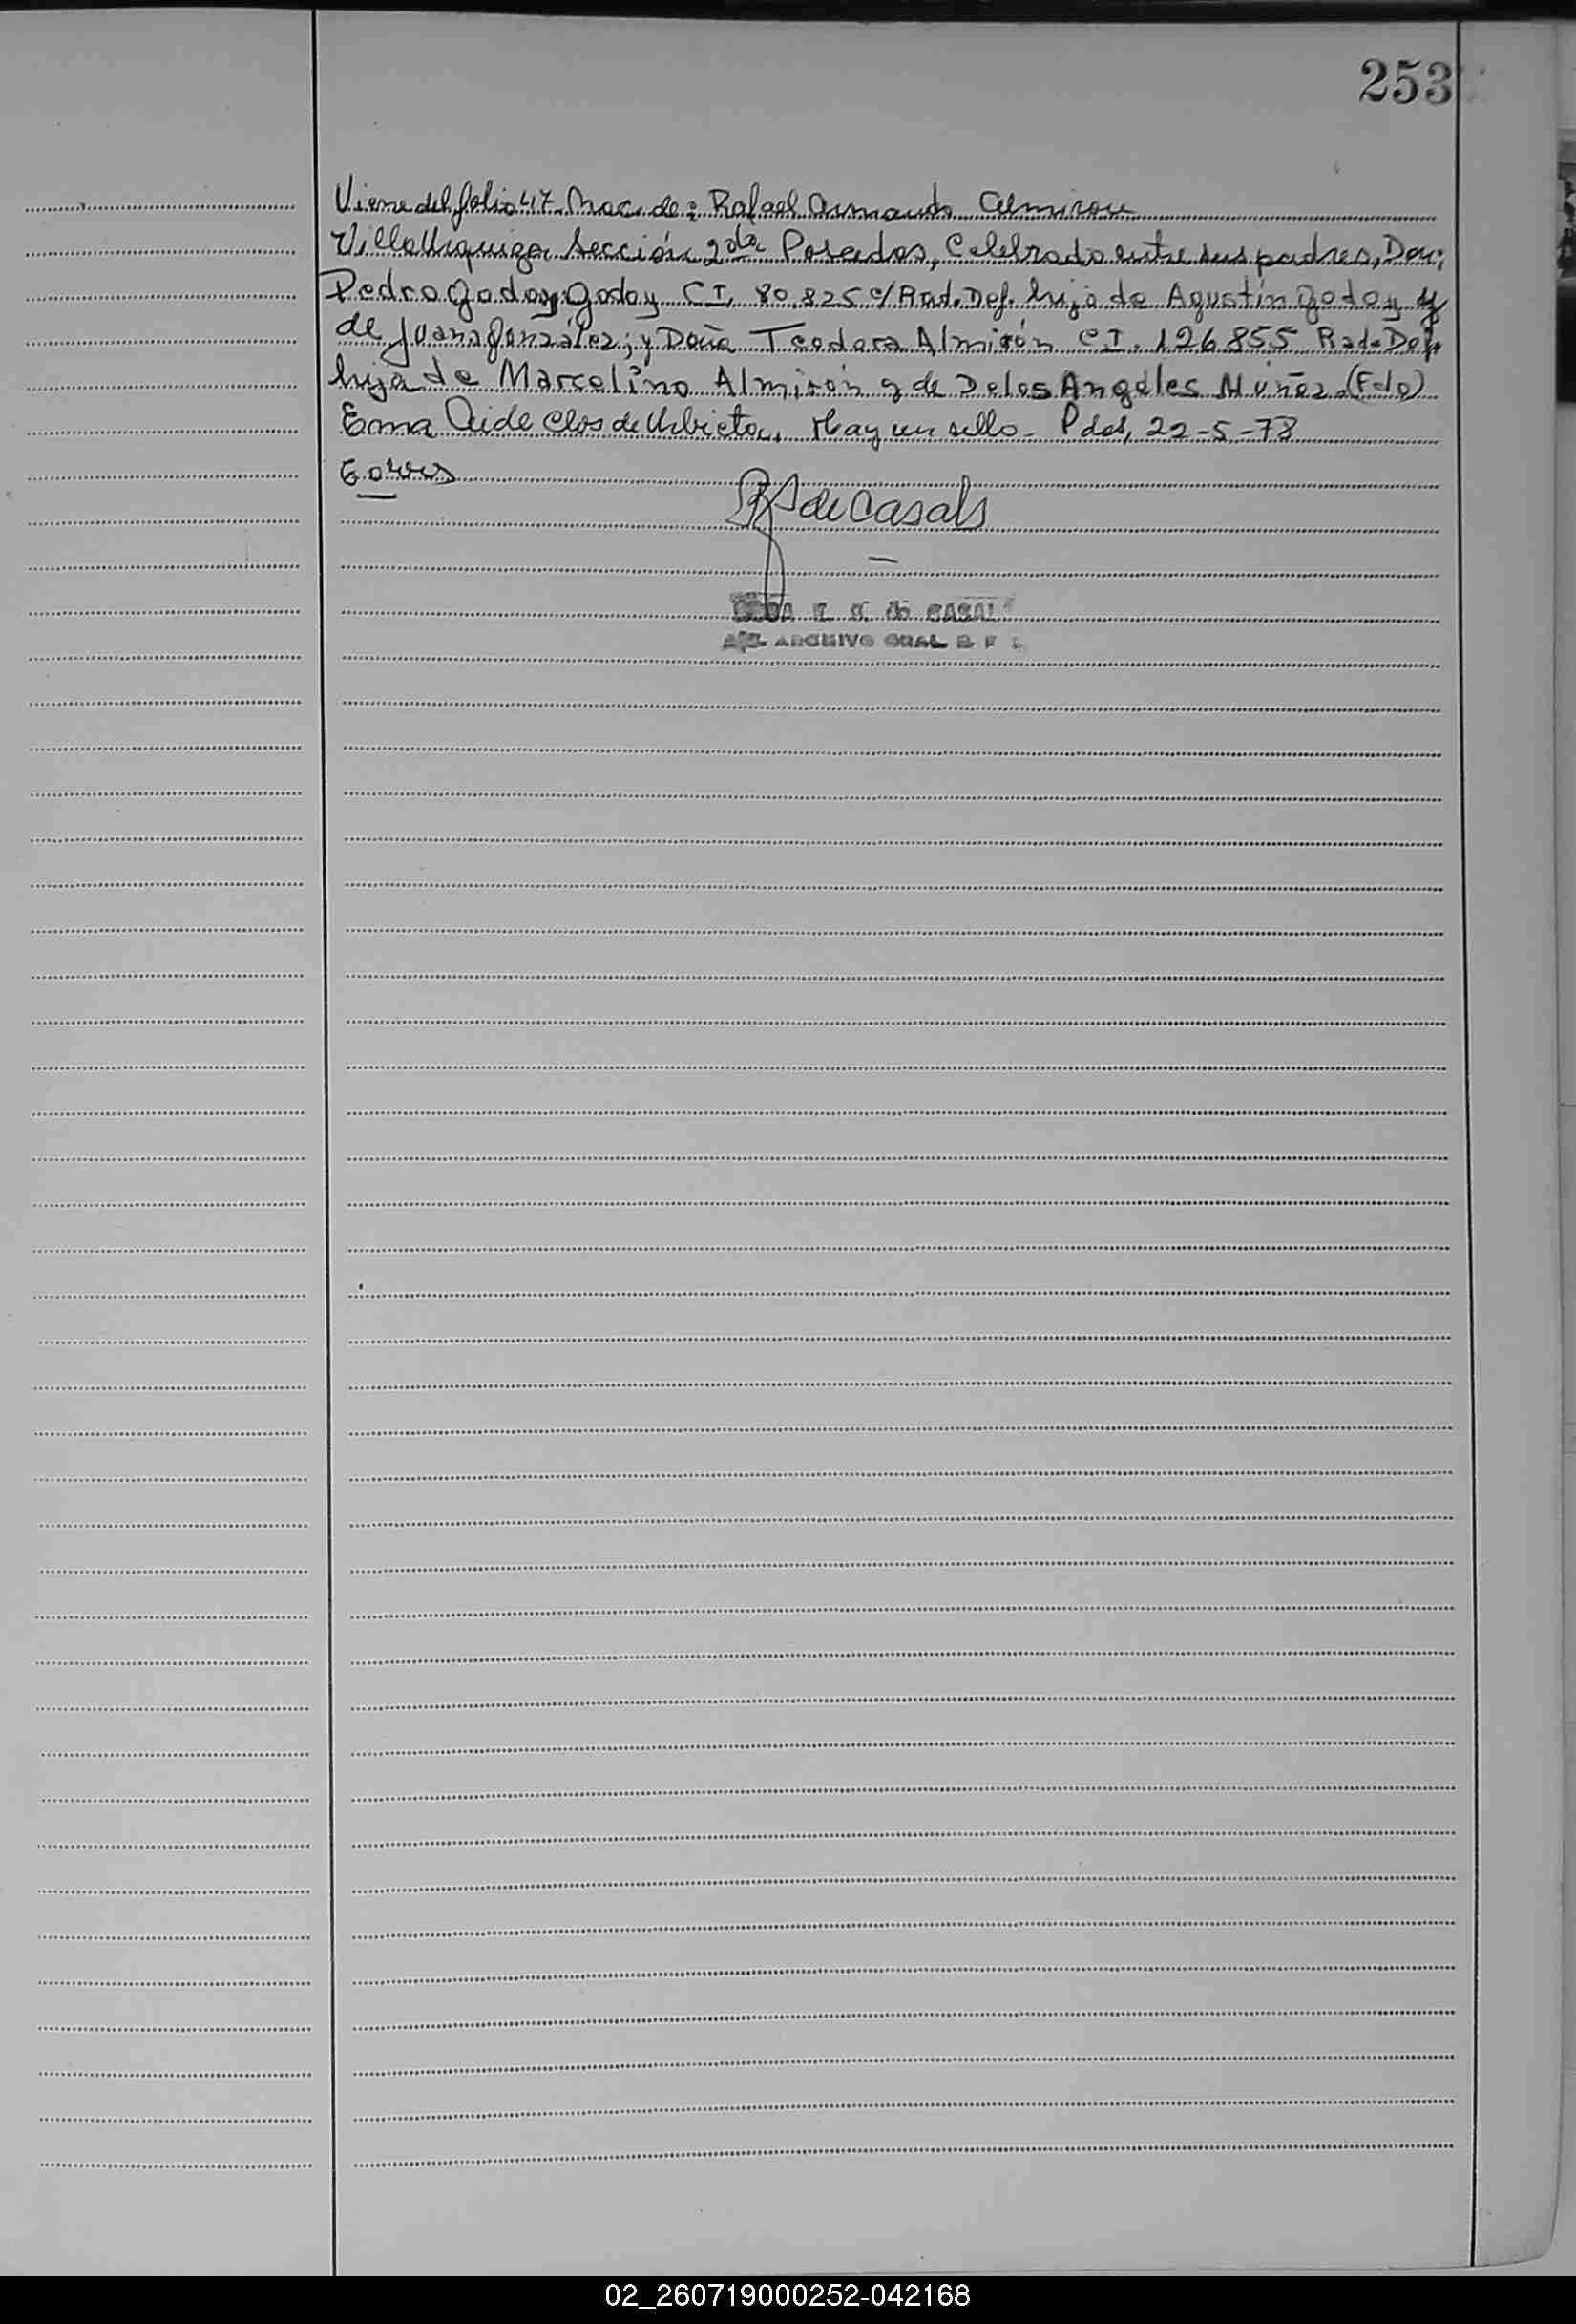 253
Viene del folio 47. Nac. de: Rafael Armando Almiron
Villa Urquiza Sección 2da Posadas, Celebrado entre sus padres, Don:
Pedro Godoy Godoy C I. 80.825 c/ Rad. Def. hijo de Agustín Godoy y
de Juana González; y Doña Teodora Almirón C I. 126855 Rad. Def.
hija de Marcelino Almirón y de De los Angeles Núñez. (Fdo)
Ema Aide Clos de Urbieta. Hay un sello - Pdas, 22-5-78
de Casals
DE CASALS
ARCHIVO GRAL
02_260719000252-042168